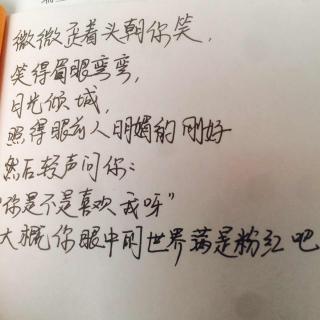 微微歪着头朝你笑,
笑得眉眼弯弯,
目光倾城,
照得眼前人明媚的刚好
然后轻声问你:
"你是不是喜欢我呀"
大概你眼中的世界满是粉红吧